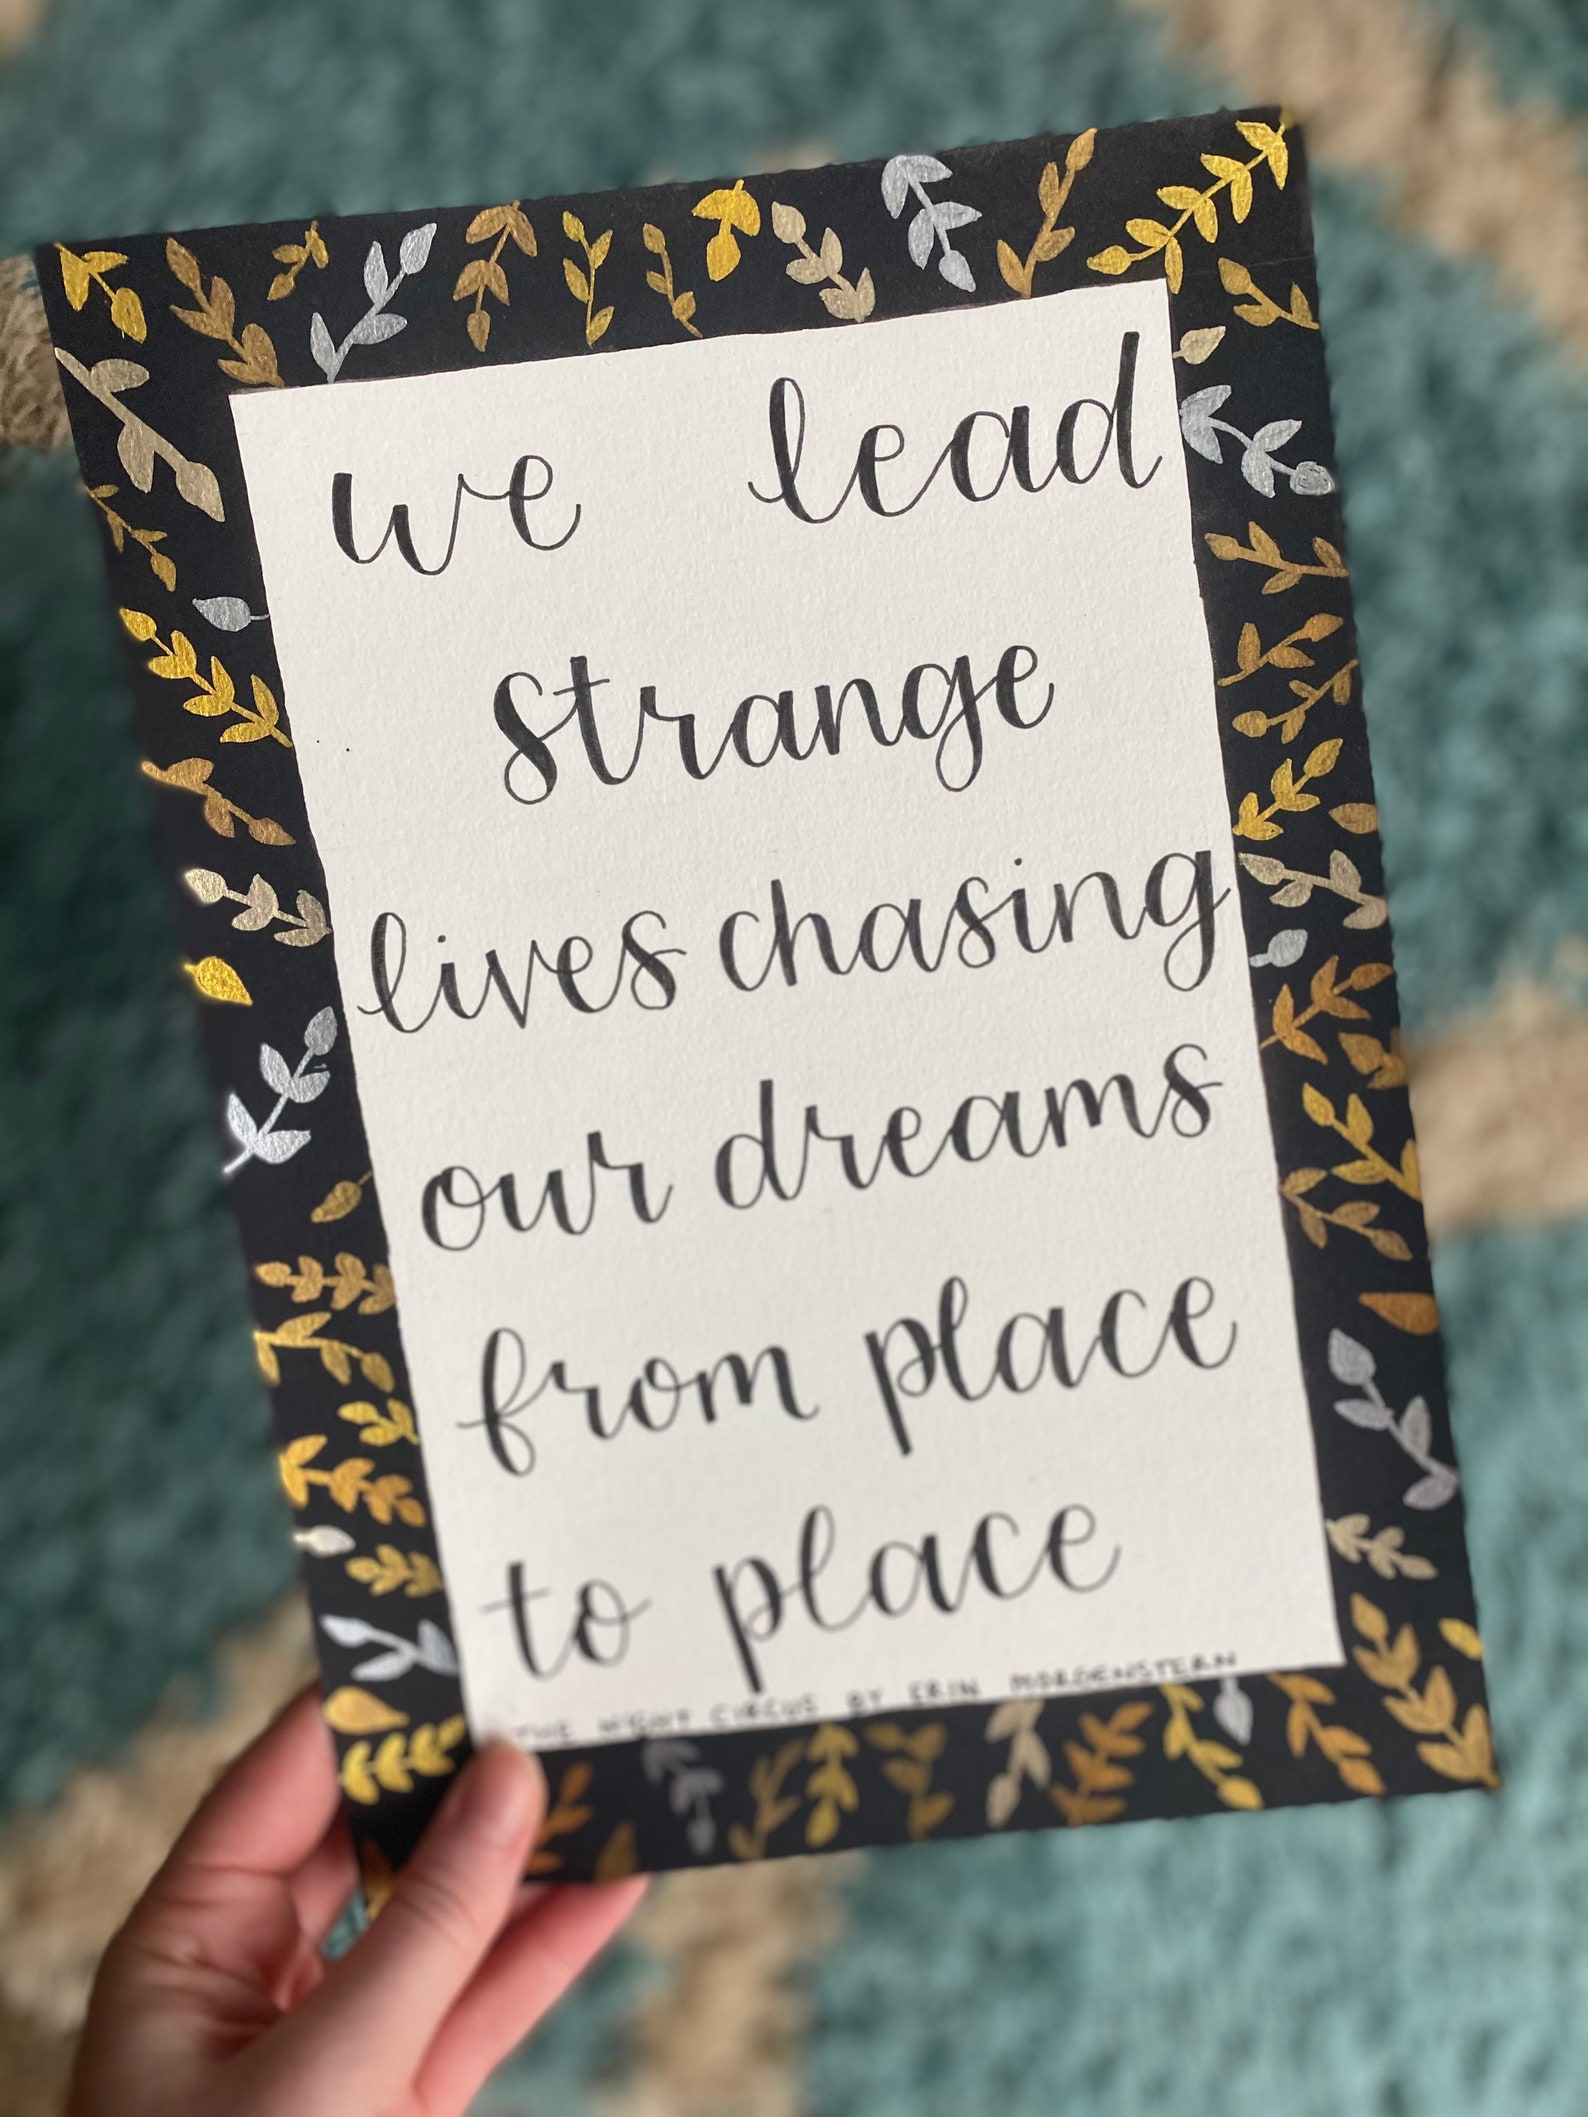 we lead
strange
lives chasing
our dreams
from place
to place
THE NIGHT CIRCUS BY ERIN MORGENSTERN